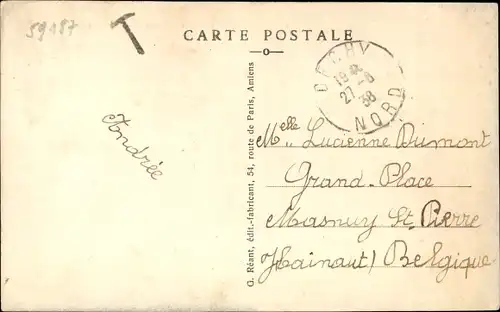 59187
T
CARTE POSTALE
19 45
27-8
38
NORD
Andrée
G. Réant, édit.-fabricant, 54, route de Paris, Amiens
Melle Lucienne Dumont
Grand-Place
Masnuy St. Pierre
(Hainaut) Belgique